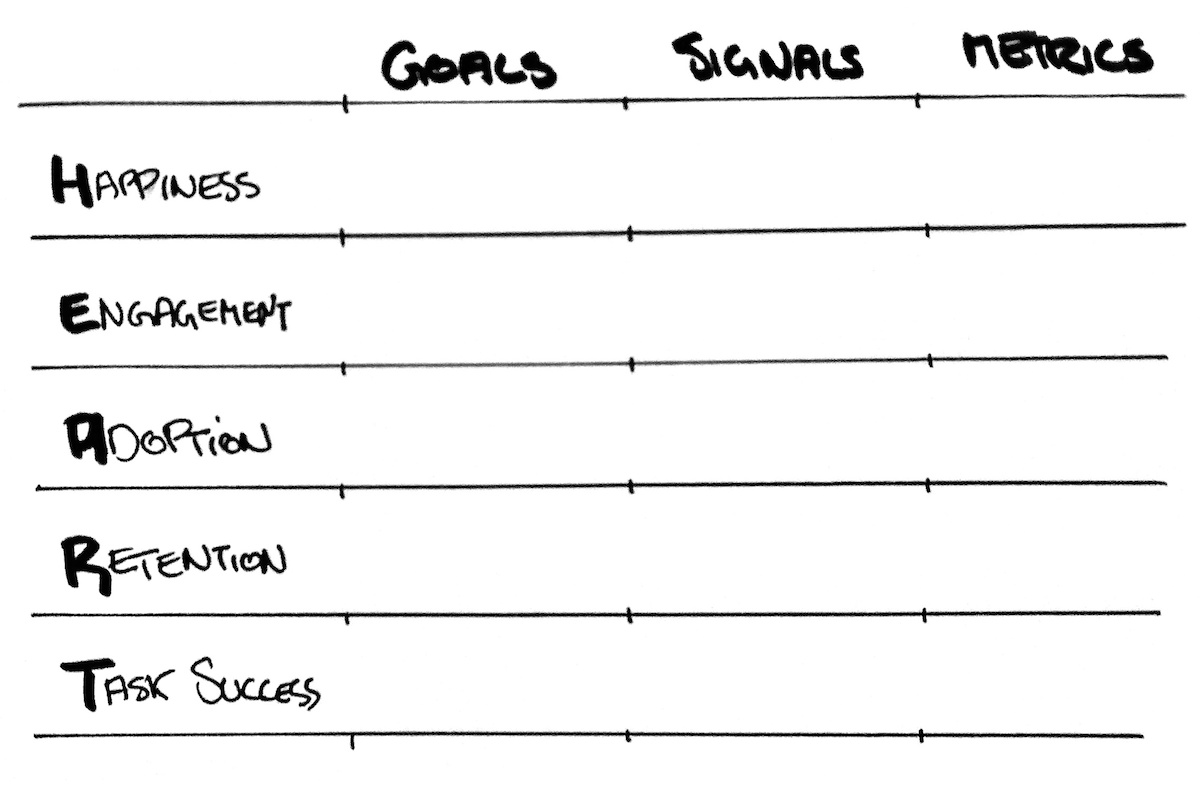 GOALS SIGNALS METRICS
HAPPINESS
ENGAGEMENT
ADOPTION
RETENTION
TASK SUCCESS